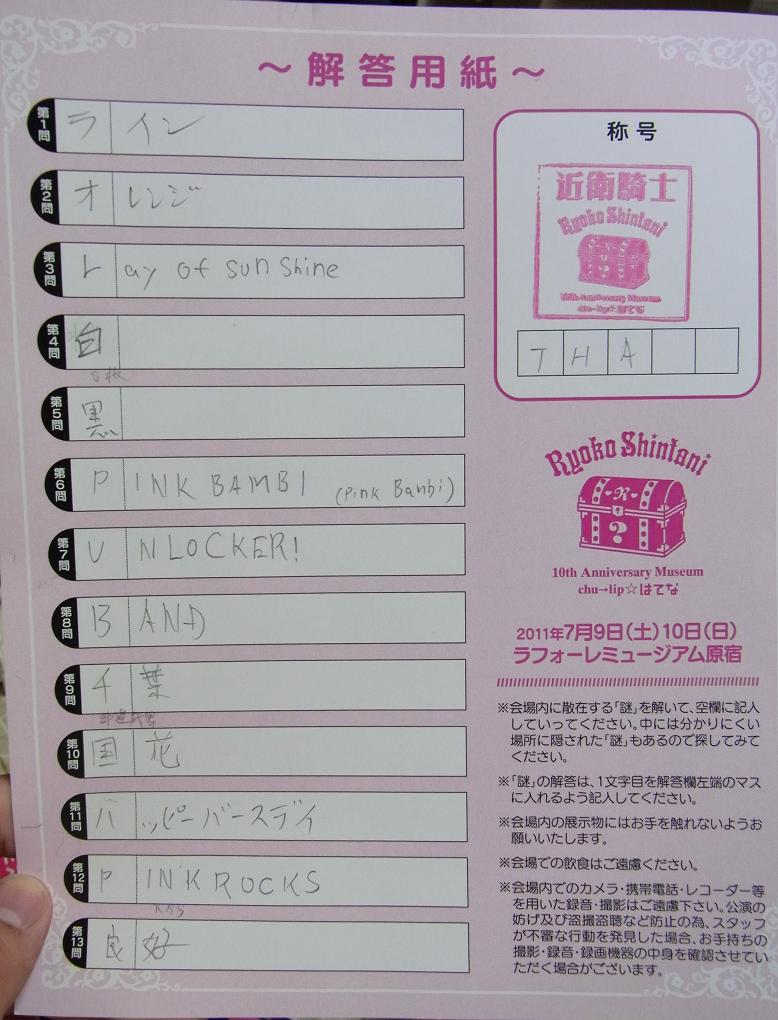 ～解答用紙～
第1問 ライン
第2問 オレンジ
第3問 ray of sunshine
第4問 白
第5問 黒
第6問 PINK BAMBI (Pink Bambi)
第7問 UNLOCKER!
第8問 BAND
第9問 千葉
第10問 国花
第11問 ハッピーバースデイ
第12問 PINK ROCKS
第13問 良好
称号
近衛騎士
Ryoko Shintani
10th Anniversary Museum
chu→lip☆はてな
THA
Ryoko Shintani
R
?
10th Anniversary Museum
chu→lip☆はてな
2011年7月9日(土)10日(日)
ラフォーレミュージアム原宿
※会場内に散在する「謎」を解いて、空欄に記入
していってください。中には分かりにくい
場所に隠された「謎」もあるので探してみて
ください。
※「謎」の解答は、1文字目を解答欄左端のマス
に入れるよう記入してください。
※会場内の展示物にはお手を触れないようお
願いいたします。
※会場での飲食はご遠慮ください。
※会場内でのカメラ・携帯電話・レコーダー等
を用いた録音・撮影はご遠慮下さい。公演の
妨げ及び盗撮盗聴など防止の為、スタッフ
が不審な行動を発見した場合、お手持ちの
撮影・録音・録画機器の中身を確認させてい
ただく場合がございます。